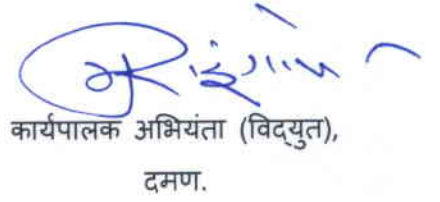 कार्यपालक अभियंता (विद्युत),
दमण.